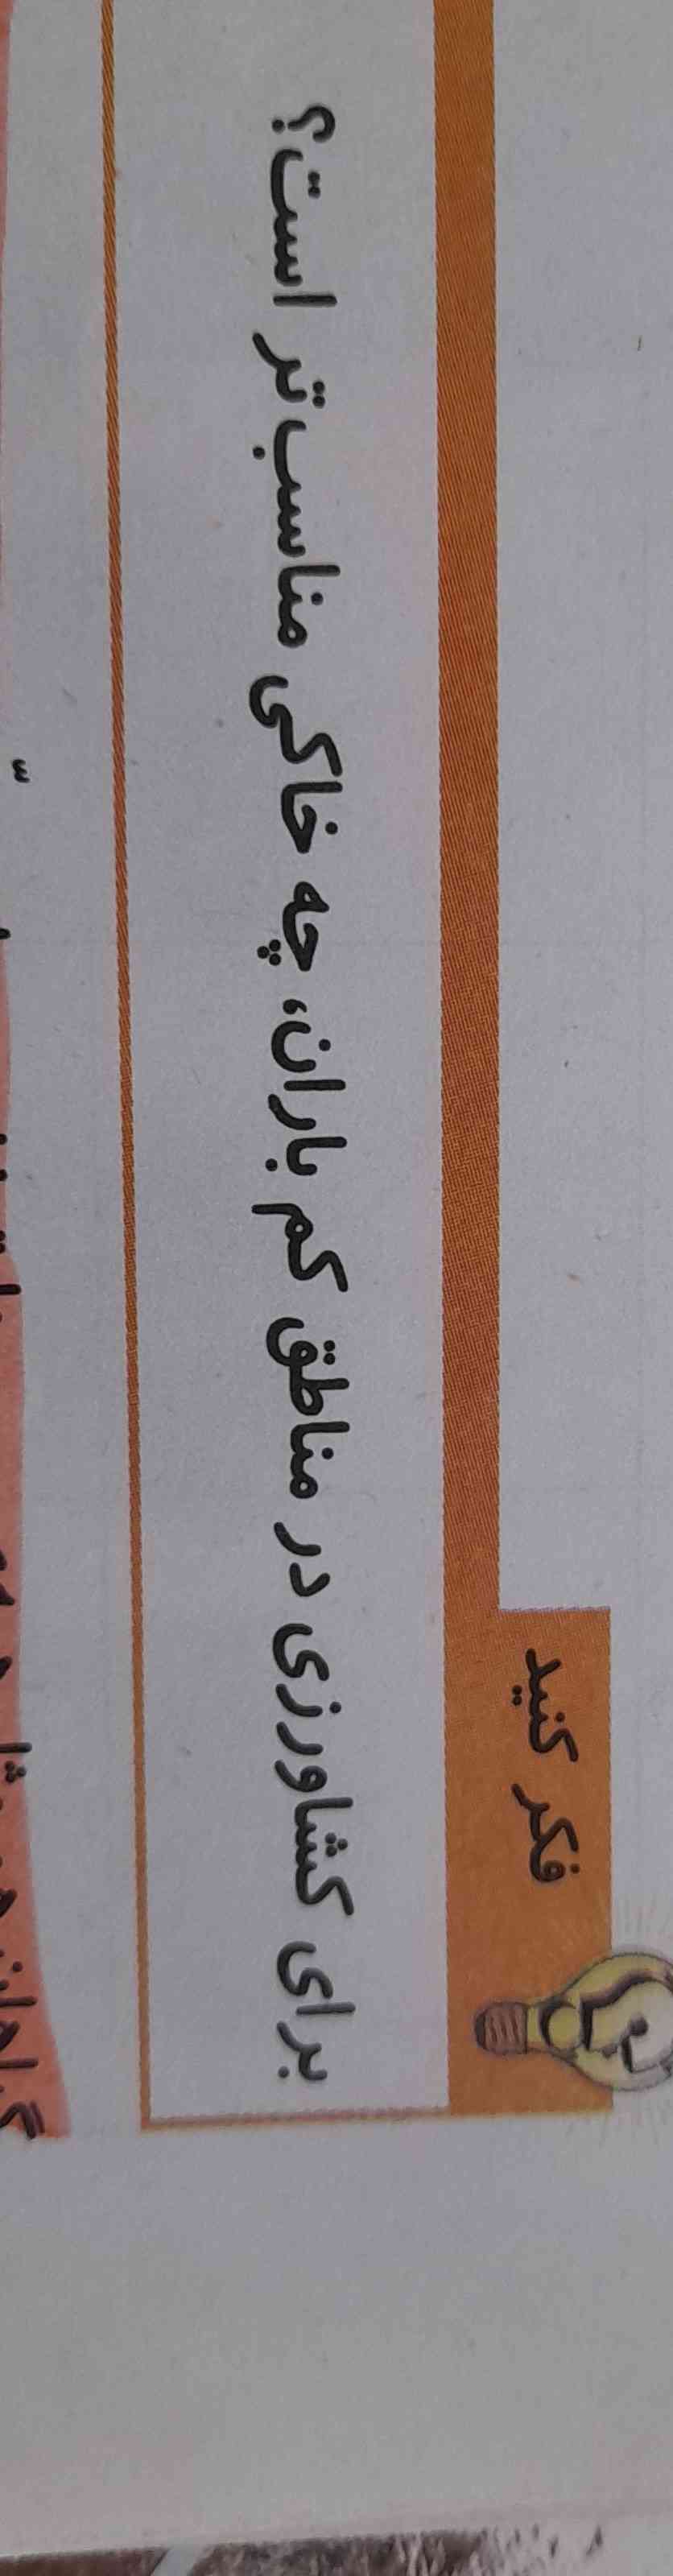 فکر کنید
برای کشاورزی در مناطق کم باران، چه خاکی مناسب تر است؟